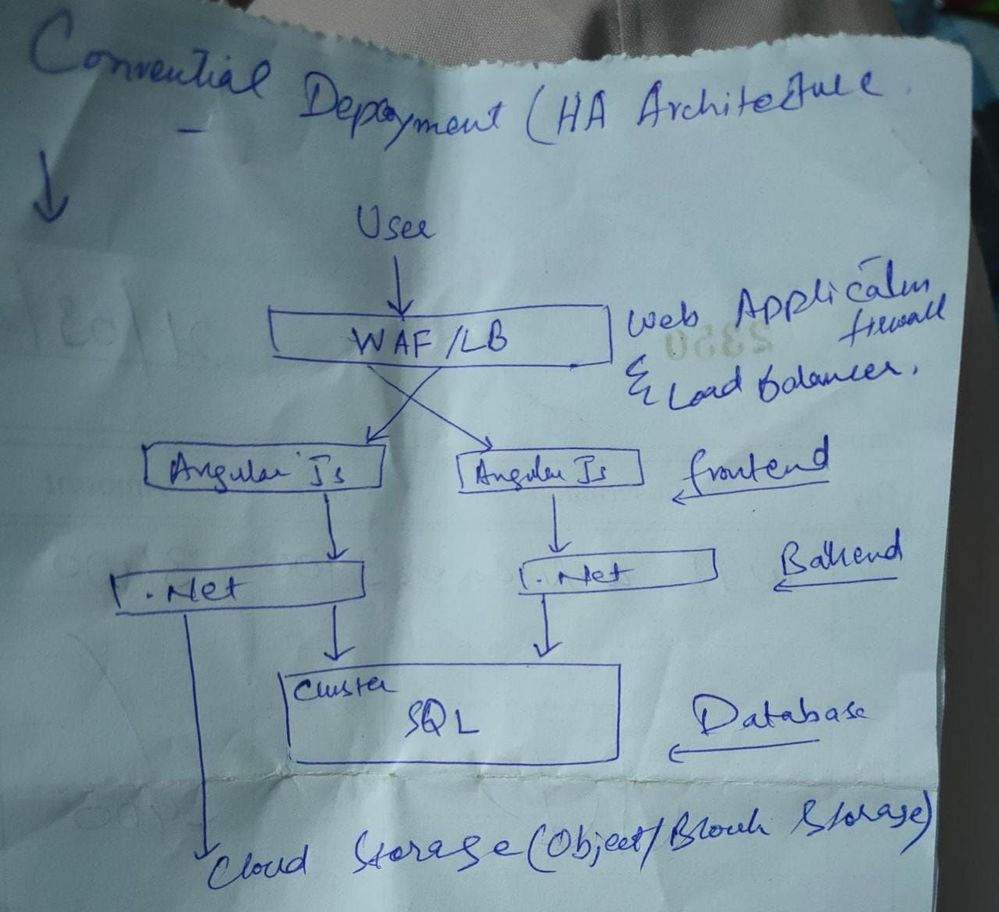 Convential Depoyment (HA Architecture
User
WAF/LB
Web Application
firewall
& Load Balancer.
Angular Js
Angular Js
frontend
.Net
.Net
Backend
Cluster
SQL
Database
Cloud Storage (Object/Block Storage)